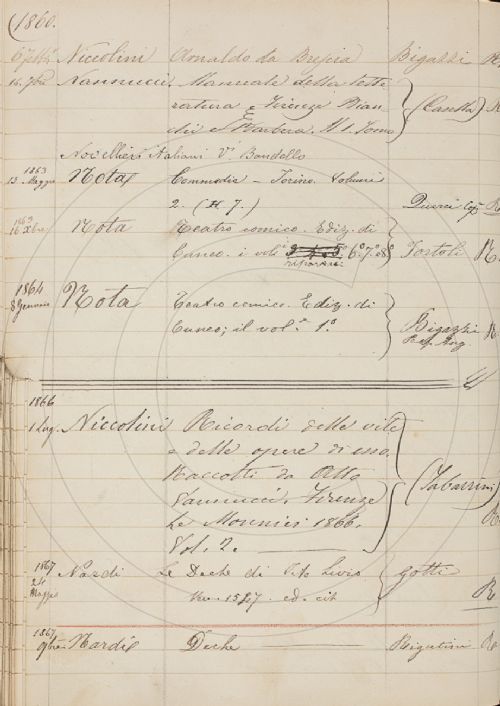 (1860.
6 7bre Niccolini Arnaldo da Brescia Bigazzi R
16. 7bre Nannucci Manuale della lette
ratura, Firenze Bian
chi e Barbera. Il 1. Tomo (Canella)
Novellieri Italiani V. Bandello
1863
13 Maggio Nota Commedie - Torino. Volumi
2. (H 7.) R
1863
16 Xbre Nota Teatro comico. Ediz. di
Cuneo. i voli 3. 4. 5. 6.° 7.° 8.° Tortoli R
1864
8 Gennaio Nota Teatro comico. Ediz. di
Cuneo; il vol.e 1.° Bigazzi R
1866
1 Lug. Niccolini Ricordi della vita
e delle opere di esso.
Raccolti da Atto
Vannucci. Firenze
Le Monnier 1866. (Tabarrini)
Vol. 2. R
1867
24
Maggo Nardi Le Deche di Tito Livio Gotti
Ven. 1547. ed. cit R
1867
9bre Nardi Deche Rigutini R